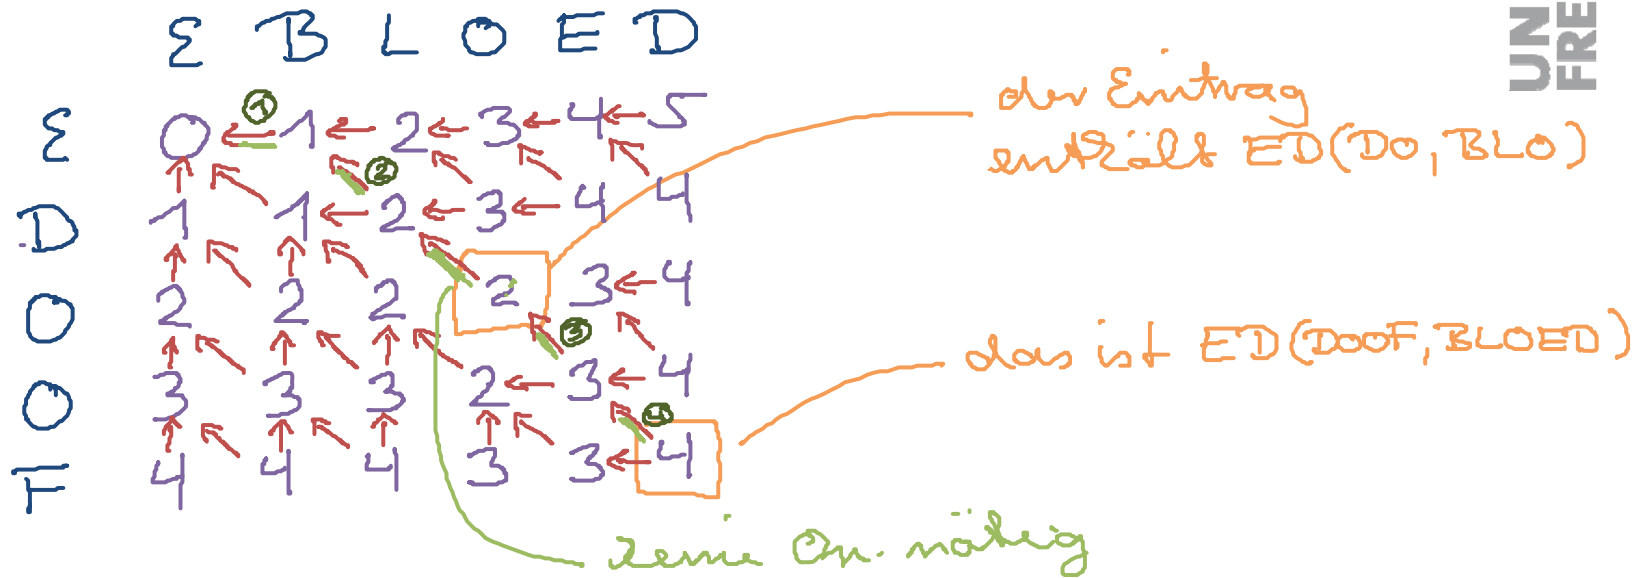 UN
FRE
ε B L O E D
ε 0 1 2 3 4 5
D 1 1 2 3 4 4
O 2 2 2 2 3 4
O 3 3 3 2 3 4
F 4 4 4 3 3 4
1
2
3
4
der Eintrag
enthält ED(DO, BLO)
das ist ED(DOOF, BLOED)
keine Op. nötig